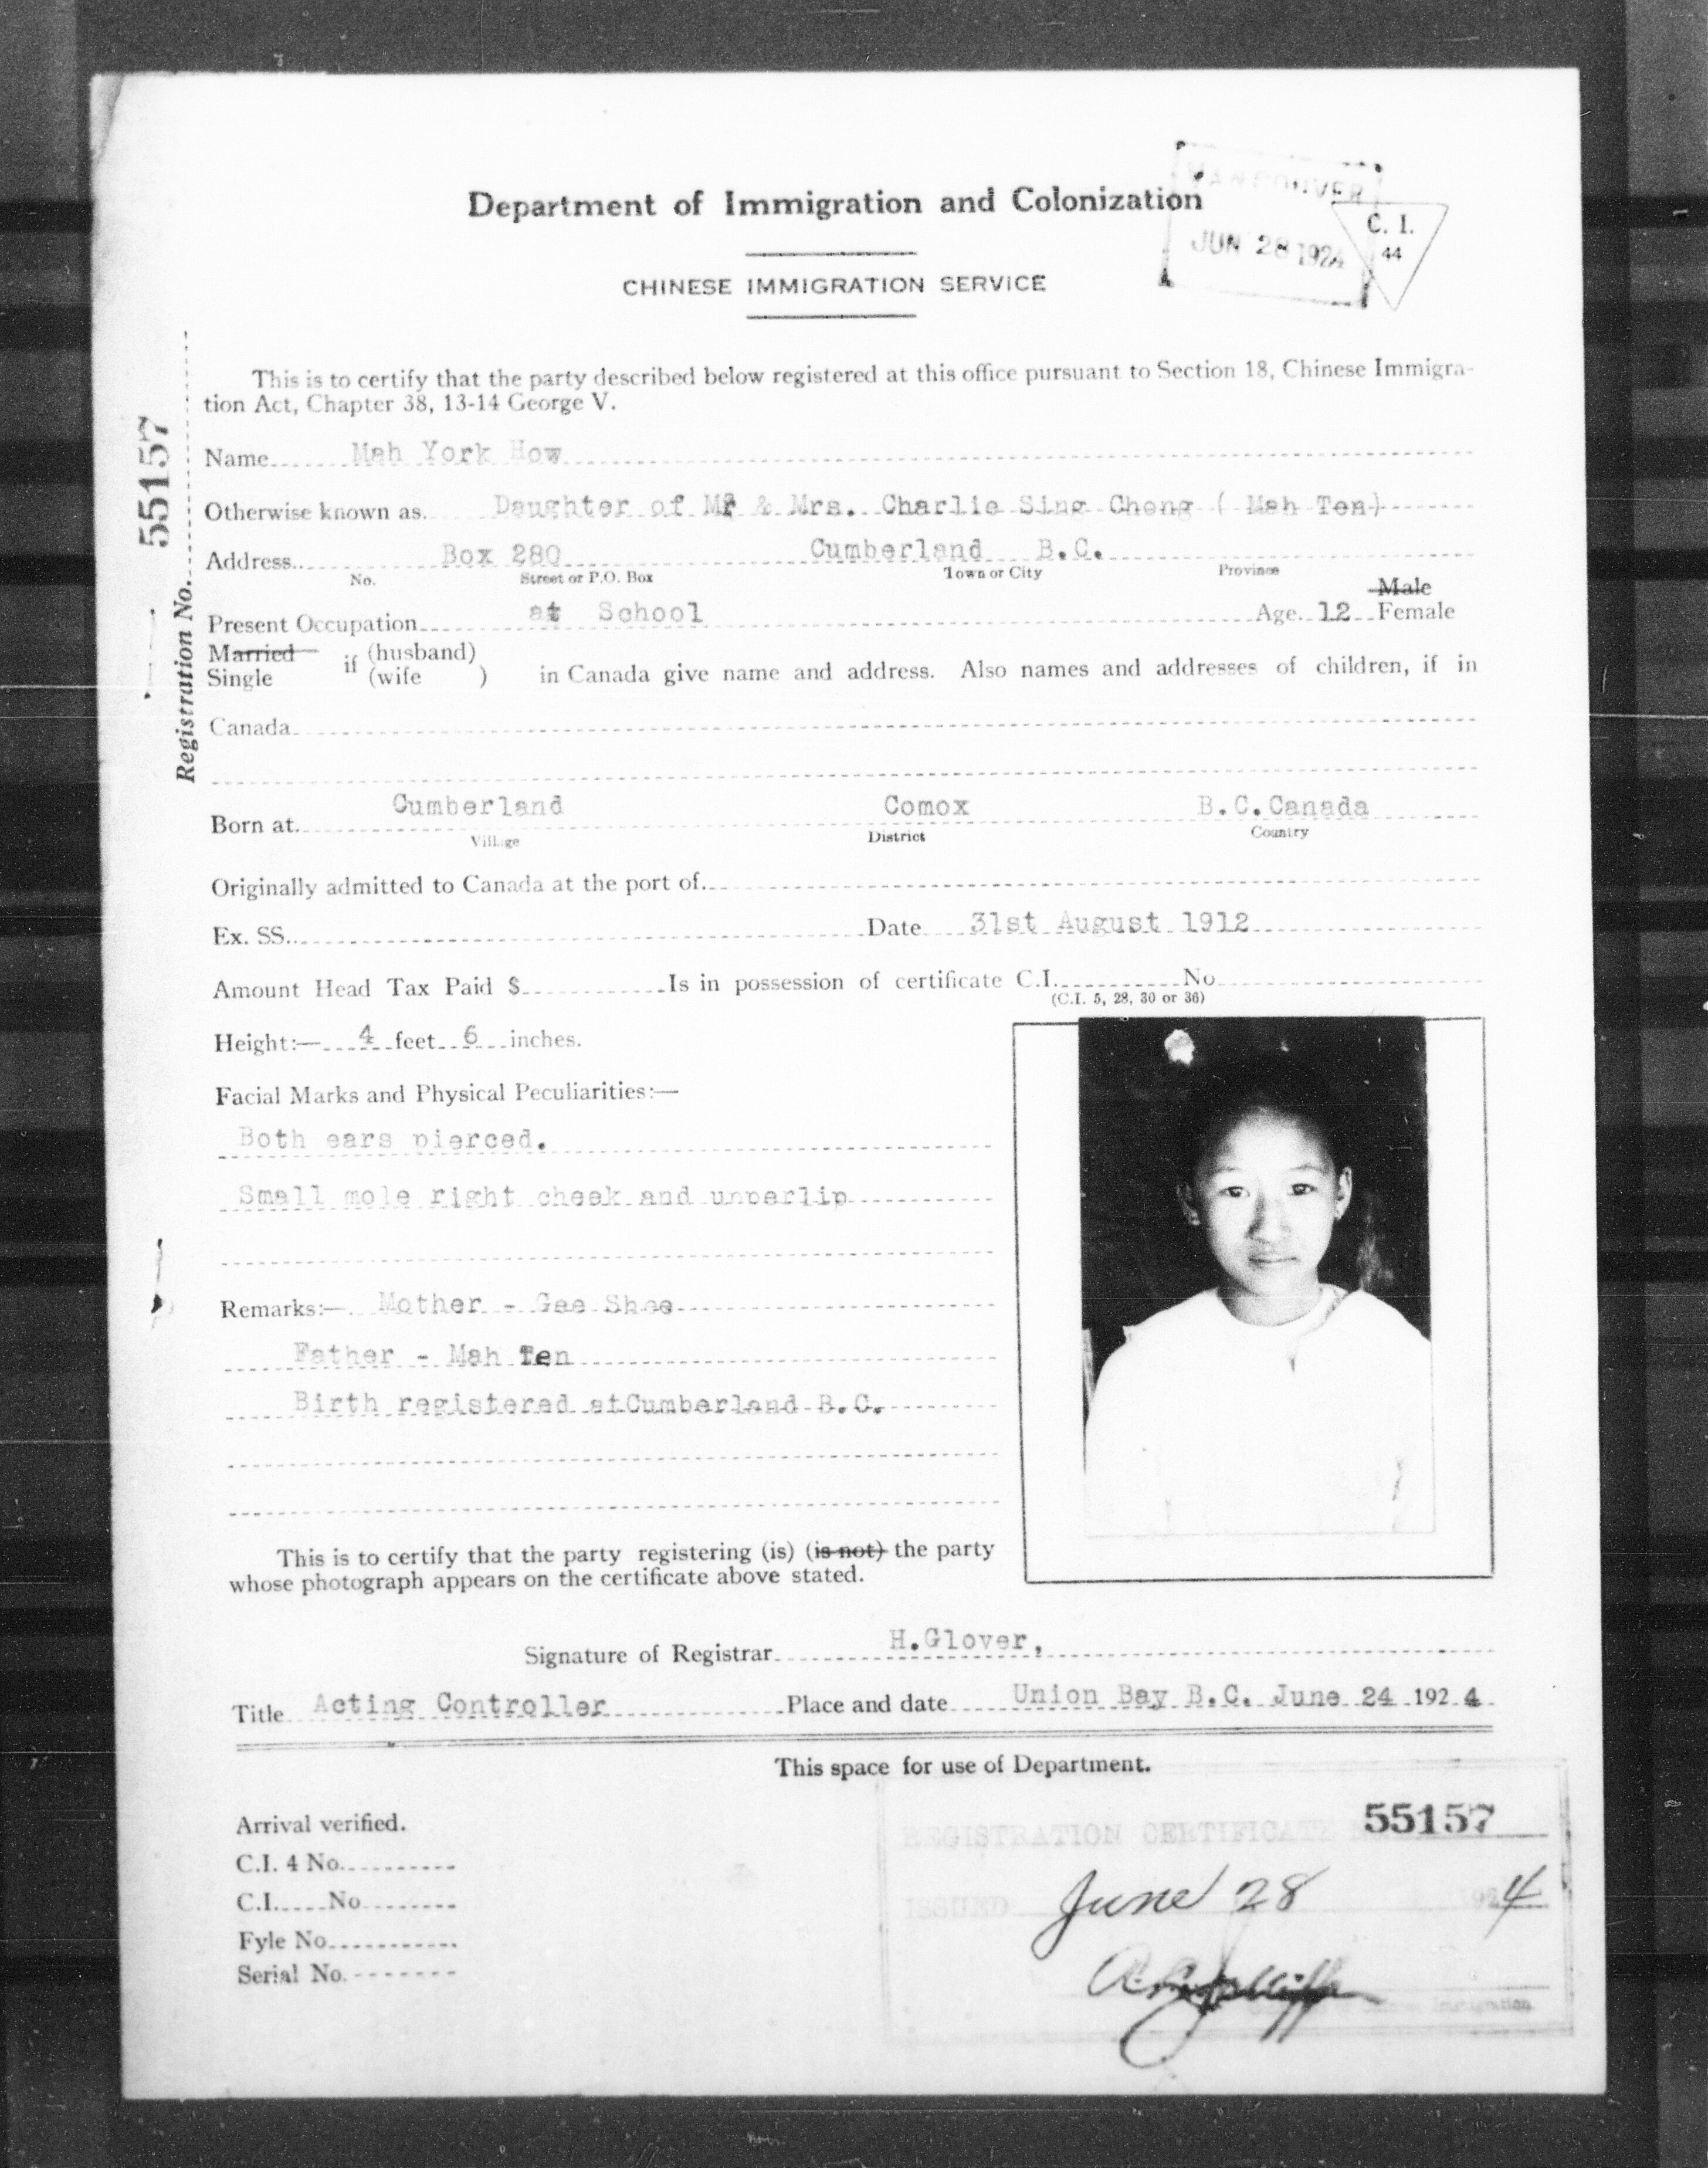 VANCOUVER
JUN 28 1924
C. I.
44
Department of Immigration and Colonization
CHINESE IMMIGRATION SERVICE
This is to certify that the party described below registered at this office pursuant to Section 18, Chinese Immigra-
tion Act, Chapter 38, 13-14 George V.
Registration No. 55157
Name Mah York How
Otherwise known as. Daughter of Mr & Mrs. Charlie Sing Chong ( Mah Ten)
Address Box 280 Cumberland B.C.
No. Street or P.O. Box Town or City Province
Male
Present Occupation at School Age. 12 Female
Married if (husband)
Single (wife ) in Canada give name and address. Also names and addresses of children, if in
Canada
Born at Cumberland Comox B.C.Canada
Village District Country
Originally admitted to Canada at the port of
Ex. SS. Date 31st August 1912
Amount Head Tax Paid $ Is in possession of certificate C.I. No
(C.I. 5, 28, 30 or 36)
Height:— 4 feet 6 inches.
Facial Marks and Physical Peculiarities:—
Both ears pierced.
Small mole right cheek and upperlip
Remarks:— Mother - Gee Shee
Father - Mah Ten
Birth registered atCumberland B.C.
This is to certify that the party registering (is) (is not) the party
whose photograph appears on the certificate above stated.
Signature of Registrar H.Glover,
Title Acting Controller Place and date Union Bay B.C. June 24 1924
This space for use of Department.
Arrival verified.
C.I. 4 No.
C.I. No
Fyle No
Serial No.
REGISTRATION CERTIFICATE 55157
ISSUED June 28 1924
Immigration